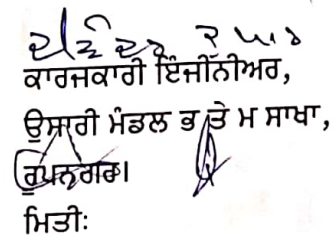 ਕਾਰਜਕਾਰੀ ਇੰਜੀਨੀਅਰ,
ਉਸਾਰੀ ਮੰਡਲ ਭ ਤੇ ਮ ਸਾਖਾ,
ਰੂਪਨਗਰ।
ਮਿਤੀਃ